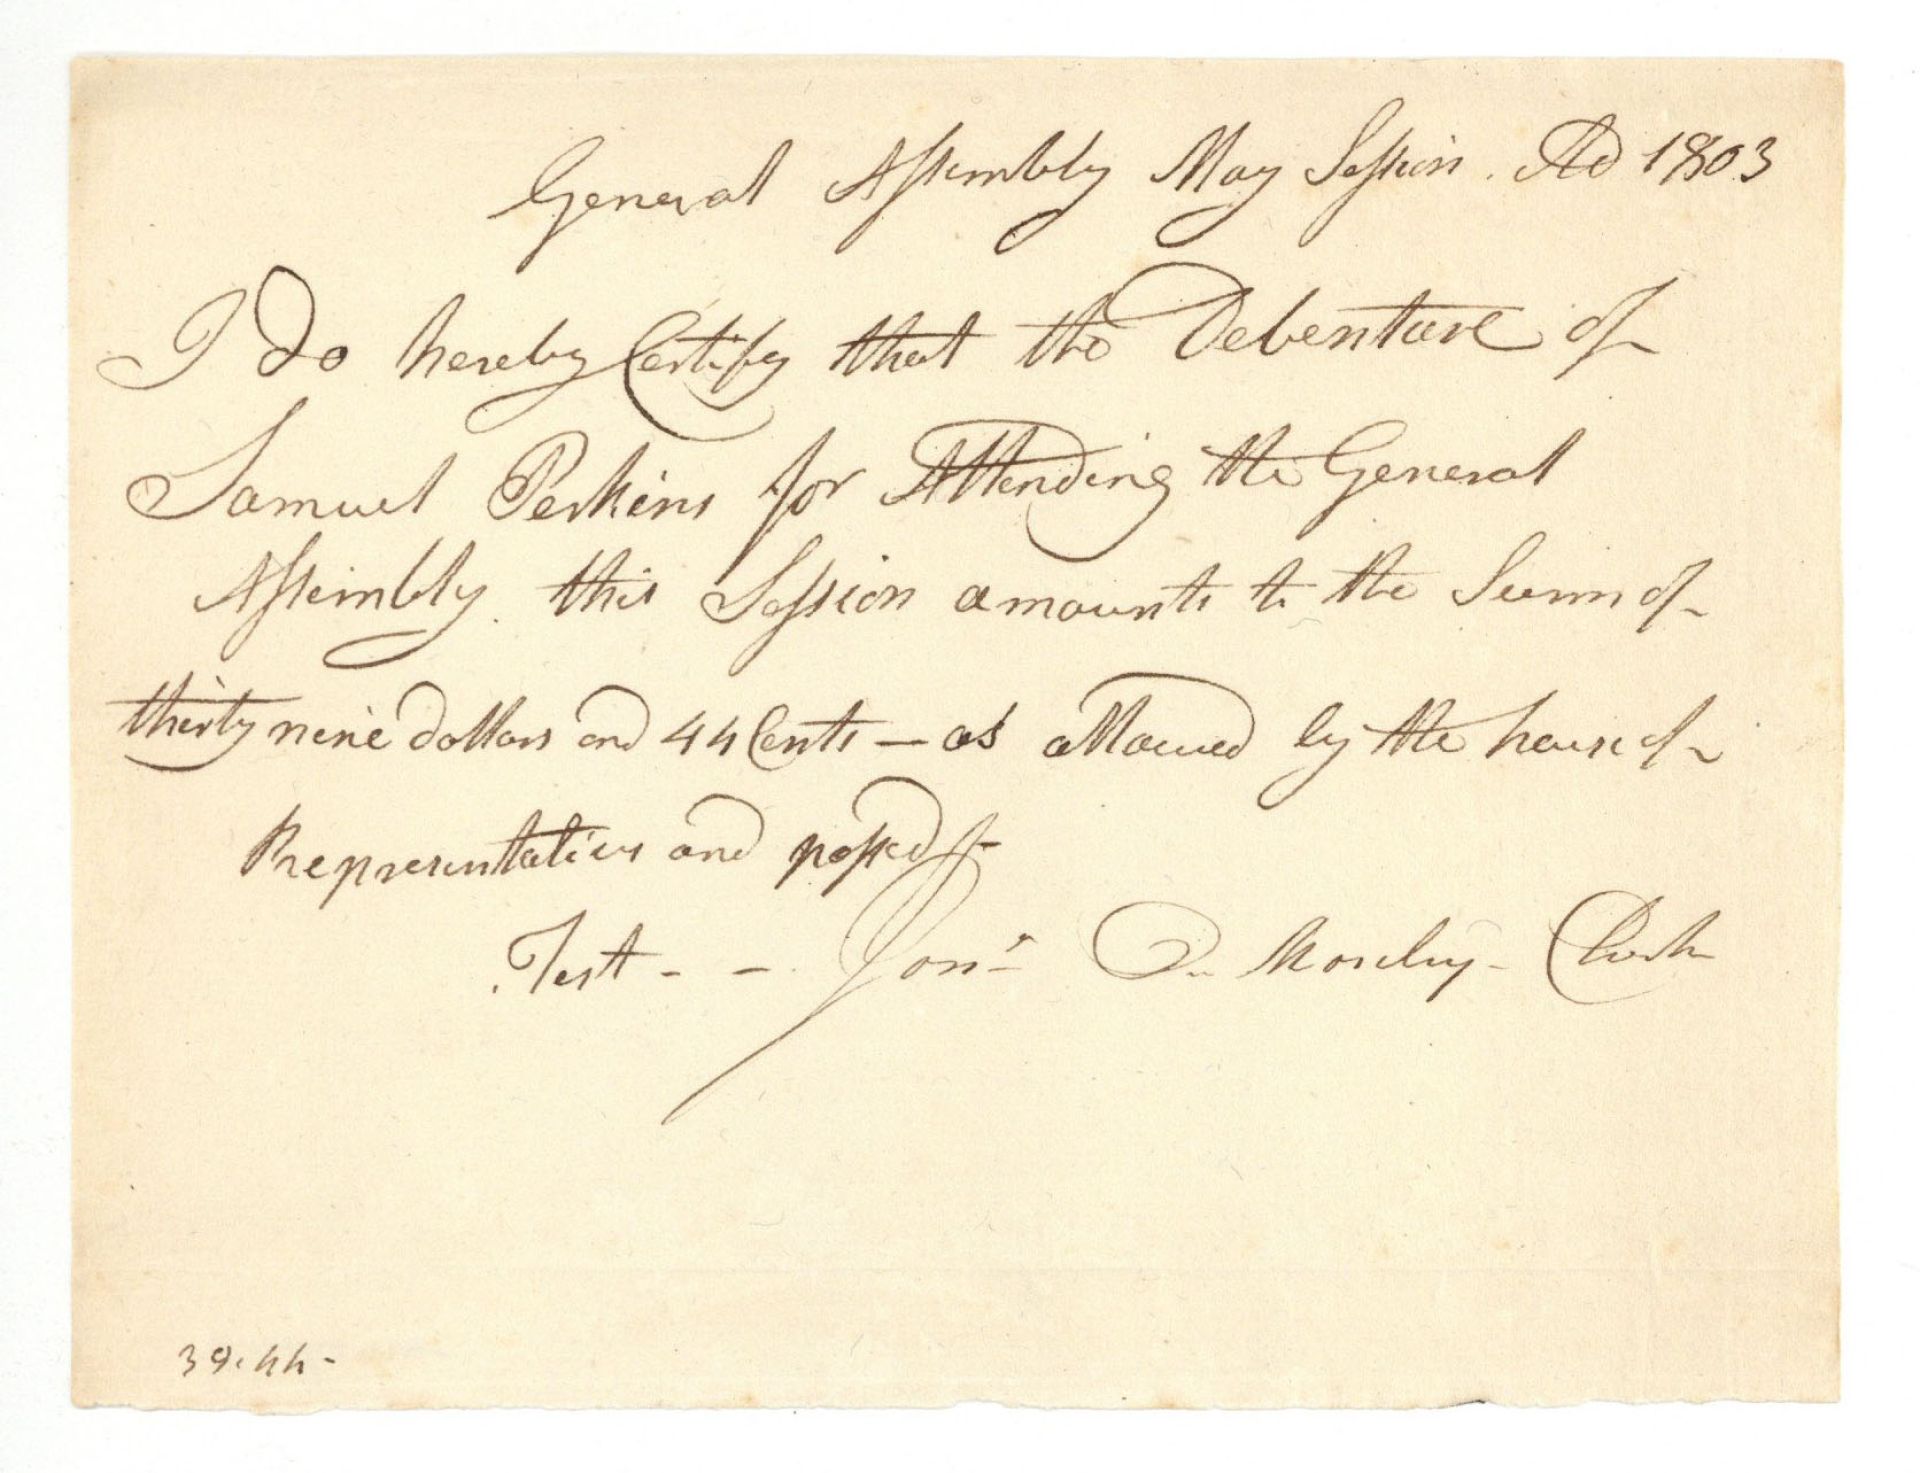 General Assembly May Session. AD 1803
I Do hereby Certify that the Debenture of
Samuel Perkins for Attending the General
Assembly this Session amounts to the Sum of
thirty nine dollars and 44 Cents — as allowed by the house of
Representatives and passed
Test - - Jonn O. Moseley - Clerk
39.44-